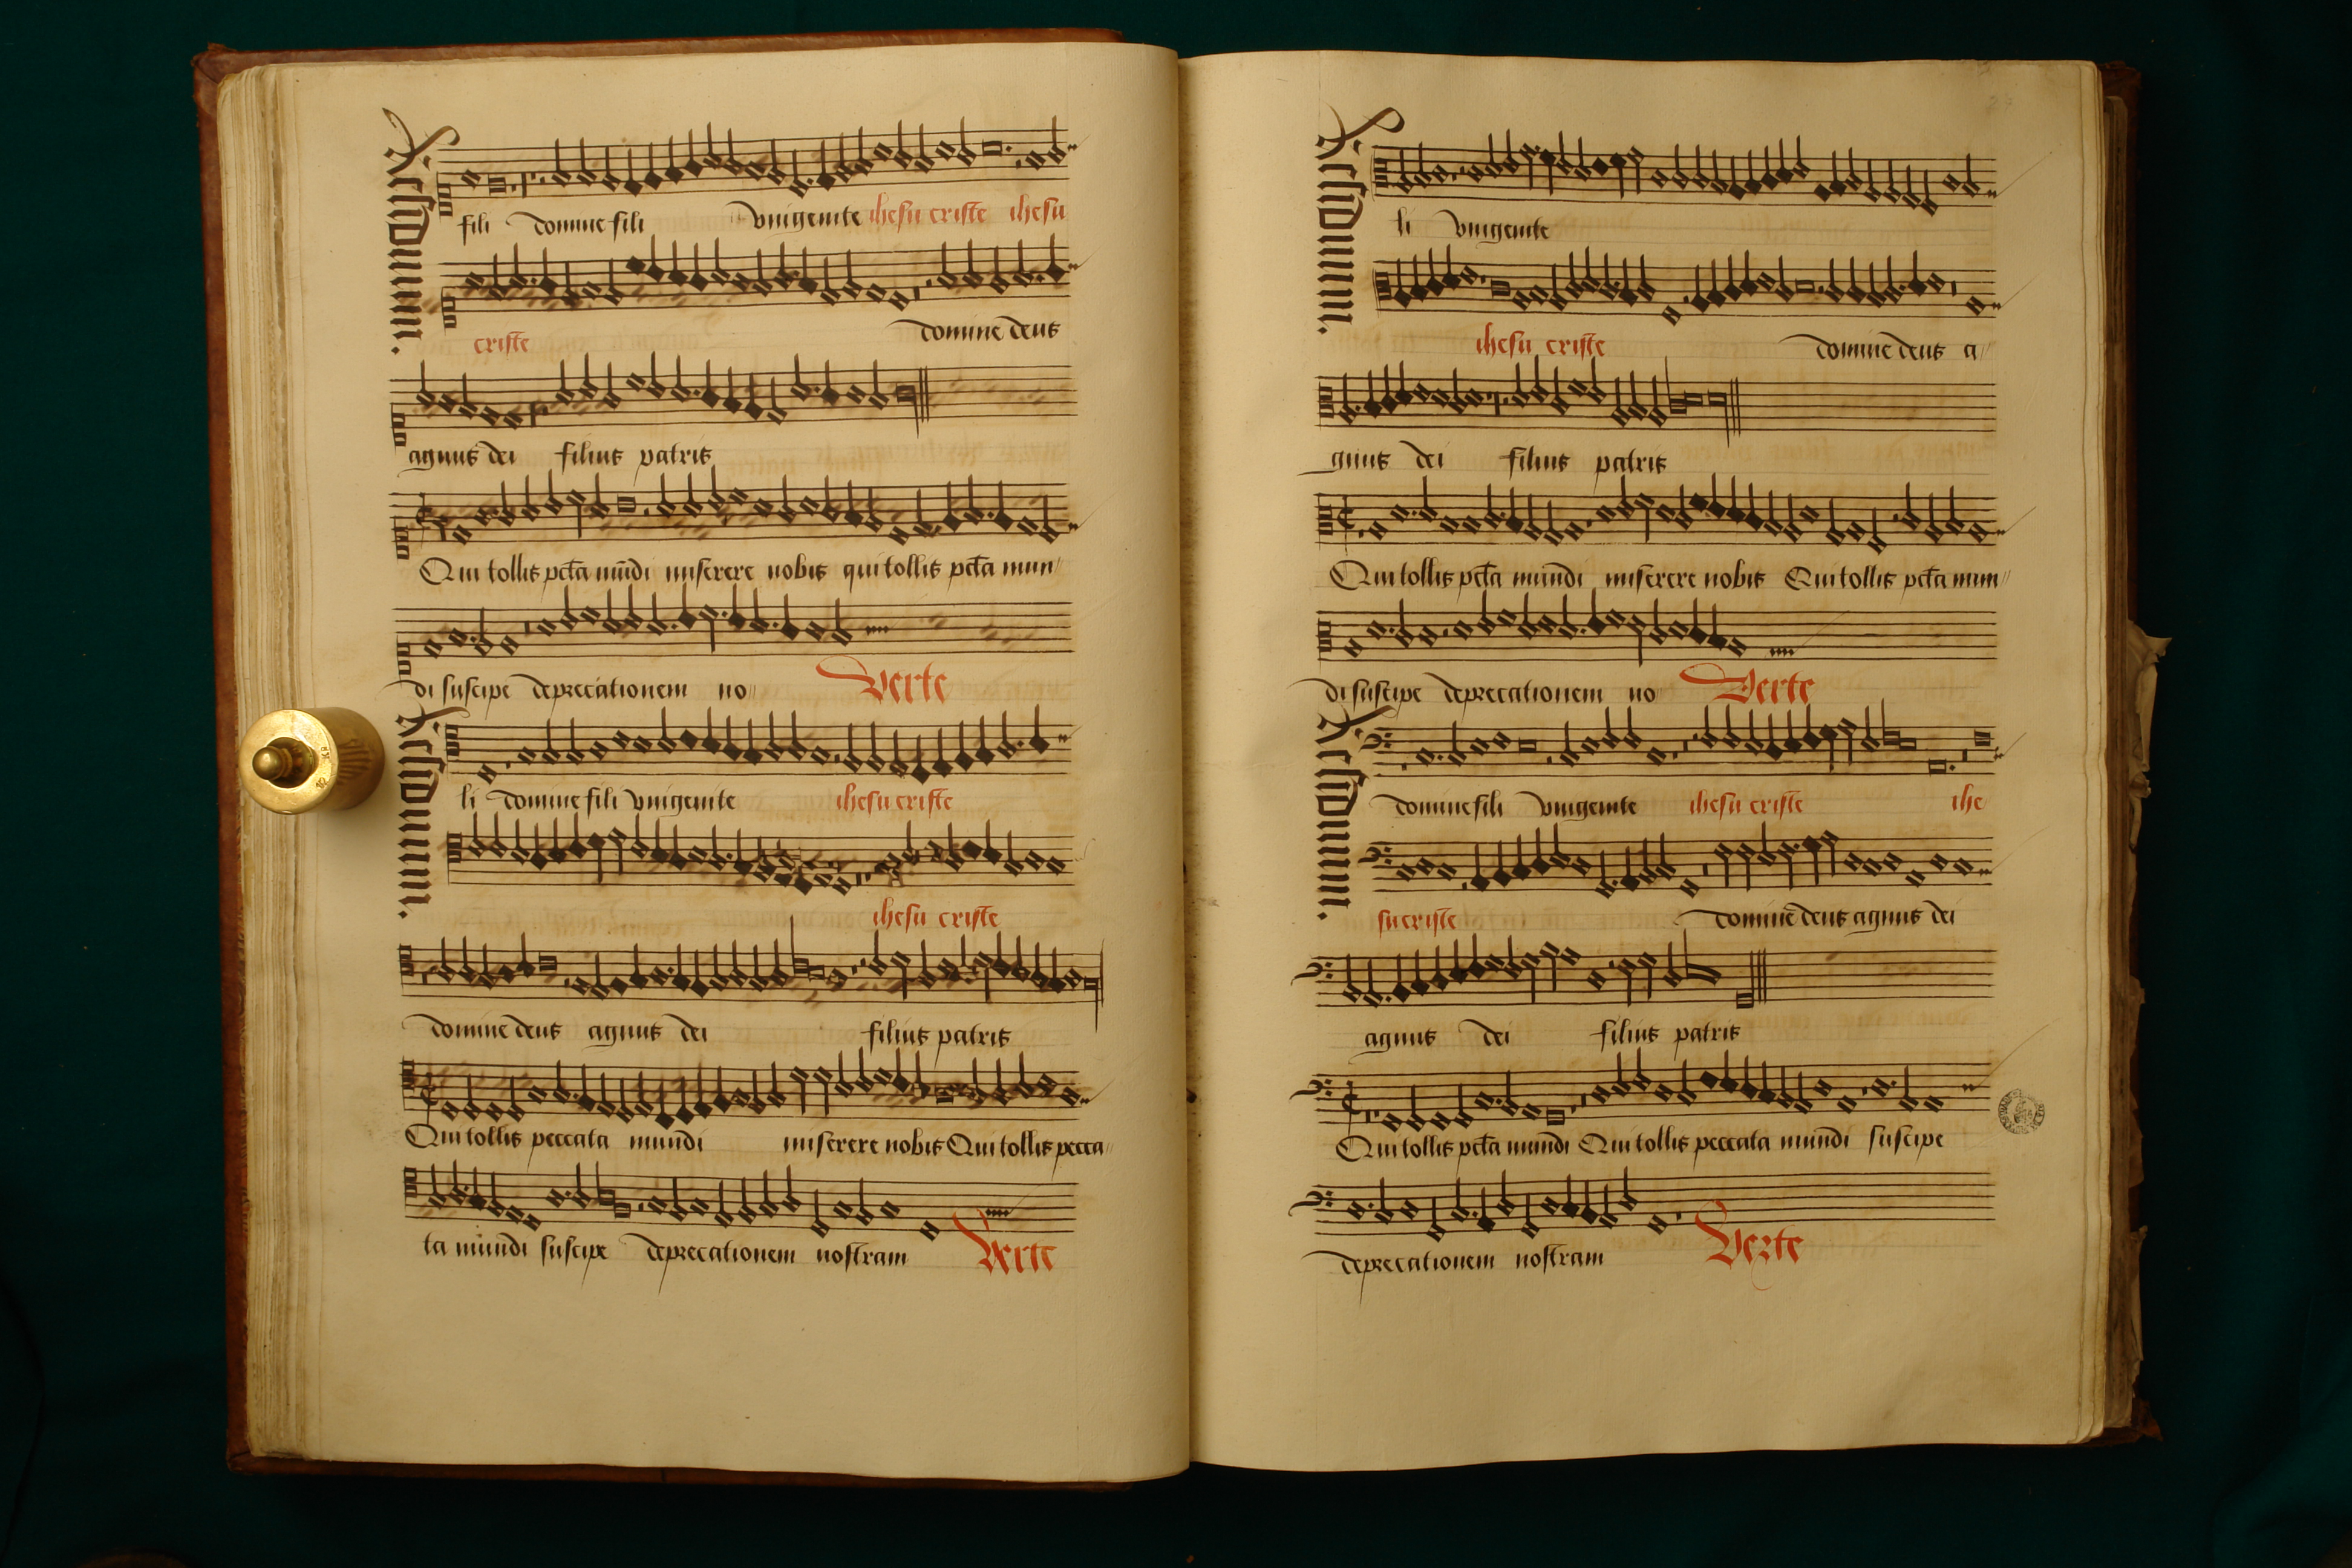 Residuum.
fili domine fili vnigenite ihesu criste ihesu
criste domine deus
agnus dei filius patris
Qui tollis pcta mūdi miserere nobis qui tollis pcta mun
di suscipe deprecationem no Verte
Residuum.
li domine fili vnigenite ihesu criste
ihesu criste
domine deus agnus dei filius patris
Qui tollis peccata mundi miserere nobis Qui tollis pecca
ta mundi suscipe deprecationem nostram Verte
Residuum.
li vnigenite
ihesu criste domine deus a
gnus dei filius patris
Qui tollis pcta mundi miserere nobis Qui tollis pcta mun
di suscipe deprecationem no Verte
Residuum.
domine fili vnigenite ihesu criste ihe
su criste domine deus agnus dei
agnus dei filius patris
Qui tollis pcta mundi Qui tollis peccata mundi suscipe
deprecationem nostram Verte